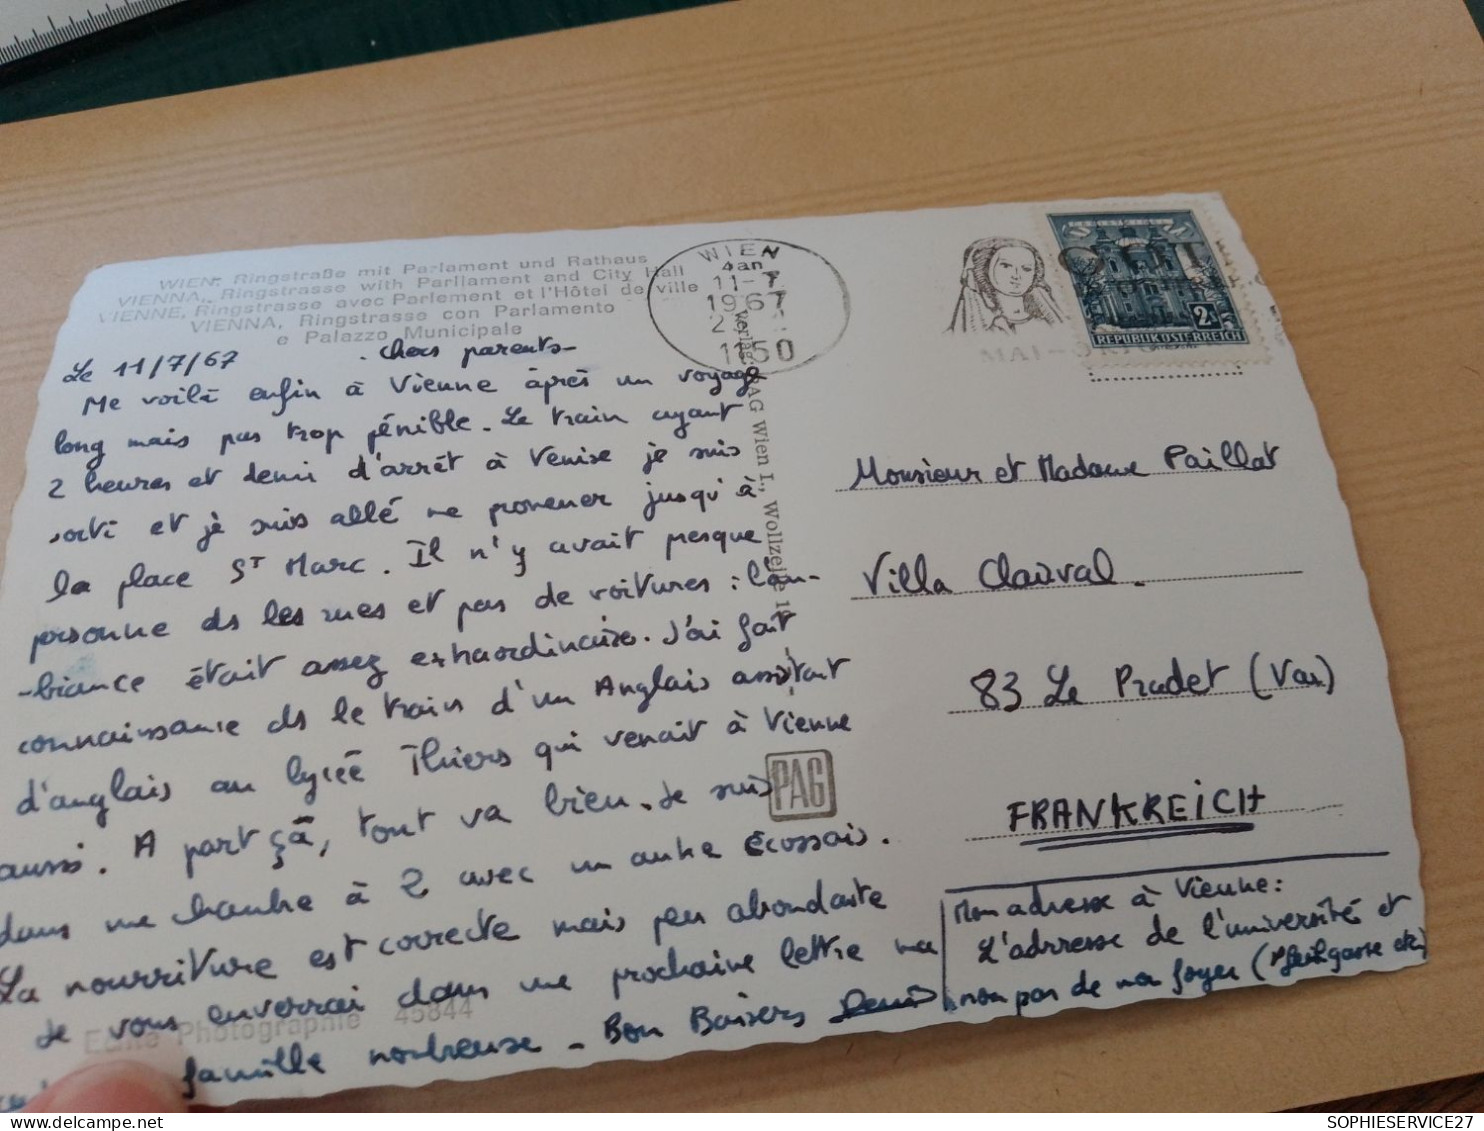 WIEN: Ringstraße mit Parlament und Rathaus
VIENNA, Ringstrasse with Parliament and City Hall
VIENNE, Ringstrasse avec Parlement et l'Hôtel de ville
VIENNA, Ringstrasse con Parlamento
e Palazzo Municipale
Le 11/7/67
Chers parents-
Me voilà enfin à Vienne après un voyage
long mais pas trop pénible. Le train ayant
2 heures et demi d'arrêt à Venise je suis
sorti et je suis allé me promener jusqu'à
la place St Marc. Il n'y avait presque
personne ds les rues et pas de voitures : l'am-
-biance était assez extraordinaire. J'ai fait
connaissance ds le train d'un Anglais assistant
d'anglais au lycée Thiers qui venait à Vienne
aussi. A part çà, tout va bien. Je suis
dans une chambre à 2 avec un autre écossais.
La nourriture est correcte mais peu abondante
Je vous enverrai dans une prochaine lettre ma
famille nombreuse - Bon Baisers Denis
Echte Photographie 45844
Verlag: PAG Wien I., Wollzeile 1
PAG
WIEN
11-7
1967
1150
MAI-OKT
2s
REPUBLIK ÖSTERREICH
Monsieur et Madame Paillat
Villa Clairval
83 Le Pradet (Var)
FRANKREICH
Mon adresse à Vienne:
L'adresse de l'université et
non pas de mon foyer (Pfeilgasse etc)
SOPHIESERVICE27